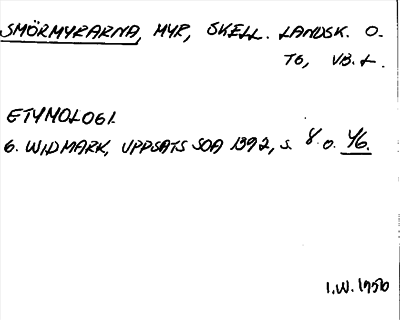 SMÖRMYRARNA, MYR, SKELL. LANDSK. O.
TG, VB.L.
ETYMOLOGI.
G. WIDMARK, UPPSATS SOA 1392, s. 8 o. 46.
I.W. 1956